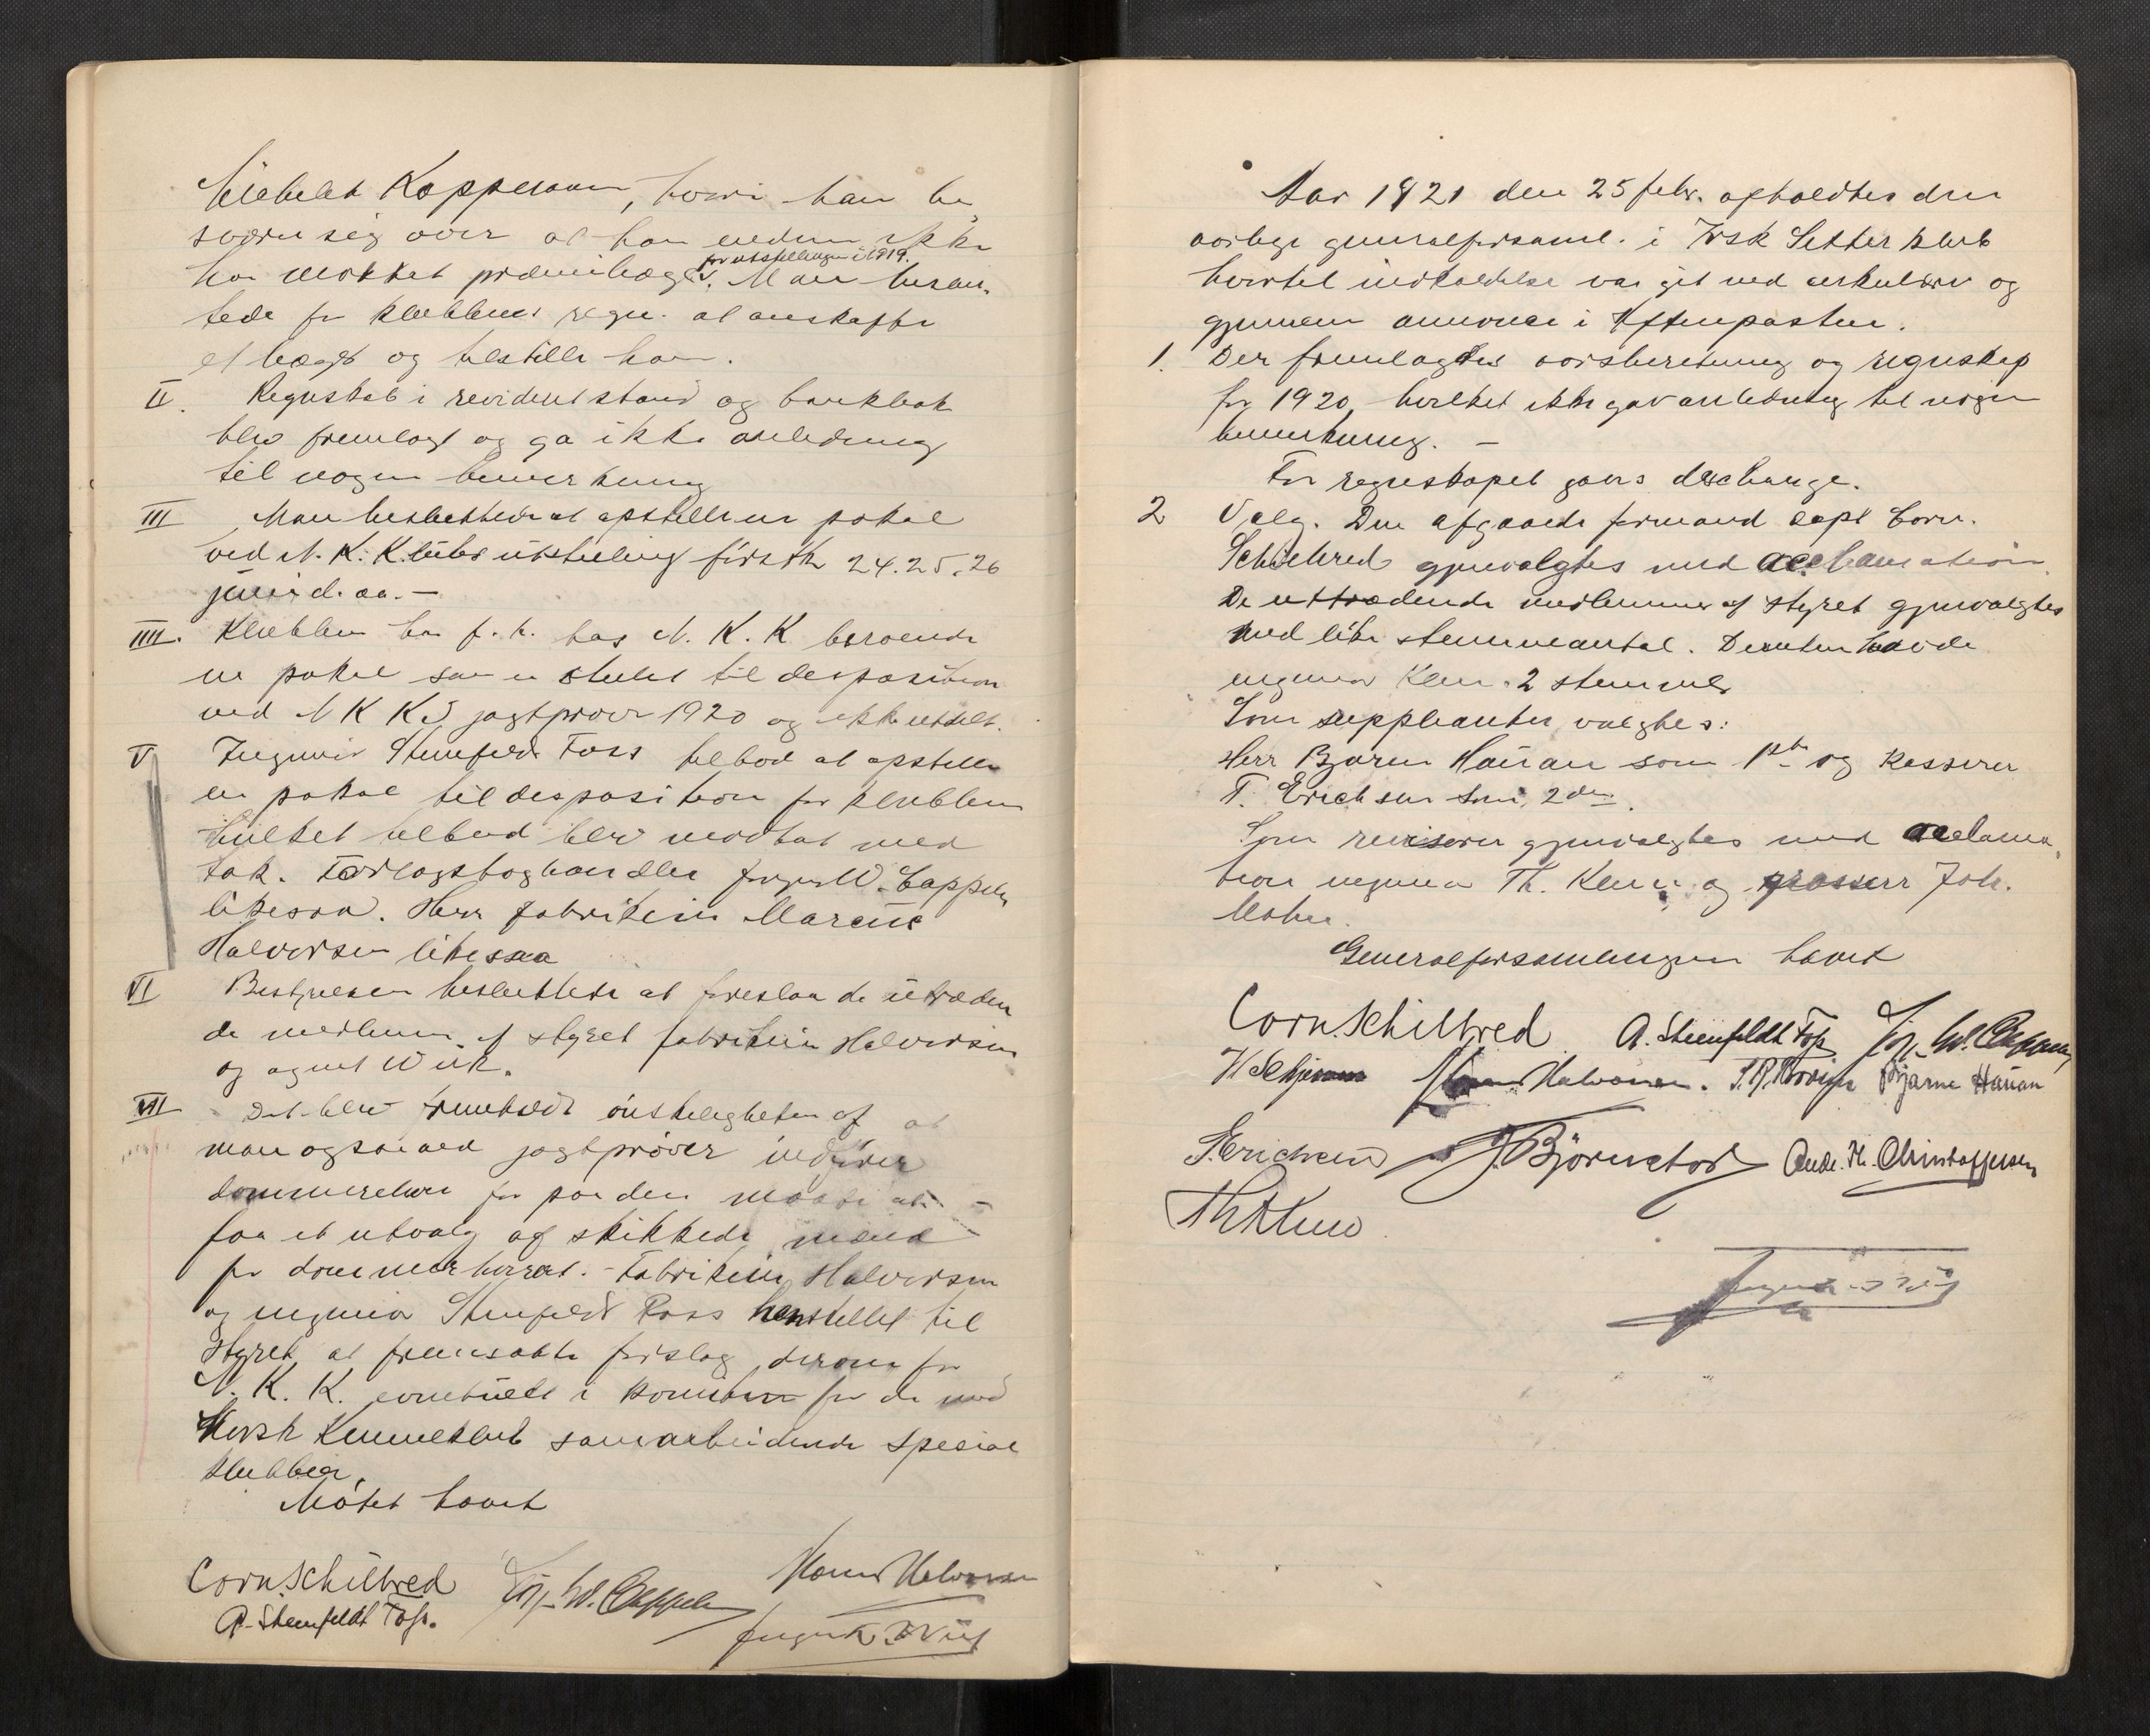 Koppesaan, hvori han be
sværer sig over at han endnu ikke
for utstillingen i 1919.
har mottat præmibæger. Man
tede for klubbens regn. at anskaffe
et bæger og tilstille ham.
II. Regnskab i revidert stand og bankbok
blev fremlagt og ga ikke anledning
til nogen bemerkning
III Man besluttede at opstille en pokal
ved N. K. Klubs utstilling førstk 24. 25. 26
juni d. aa. —
IIII. Klubben har f. t. hos N. K. K beroende
en pokal som er stillet til desposition
ved N K K's jagtprøver 1920 og ikke utdelt.
V Ingeniør Steenfeldt Foss tilbød at opstille
en pokal til desposition for klubben
hvilket tilbud blev mottat med
tak. Forlagsboghandler Jørgen W. Cappelen
likesaa. Herr fabrikeier Marcus
Halvorsen likesaa
VI Bestyrelsen besluttede at foreslaa de utræden
de medlemmer af styret fabrikeier Halvorsen
og agent Wiik.
VII Det blev fremholdt ønskeligheten af at
man ogsaa ved jagtprøver indfører
dommerelever for paa den maate at
faa et utvalg af skikkede mænd
for dommerhvervet. — Fabrikeier Halvorsen
og ingeniør Steenfeldt Foss henstillet til
styret at fremsætte forslag derom for
N. K. K. eventuelt i komiteen for de med
Norsk Kennelklub samarbeidende special
klubber.
Møtet hævet
Corn. Schilbred Jørg. W. Cappelen Marcus Halvorsen
A. Steenfeldt Foss. August Wiik
Aar 1921 den 25 febr. afholdtes den
aarlige generalforsaml. i Irsk Setter klub
hvortil indkaldelse var git ved cirkulære og
gjennem annonce i Aftenposten.
1. Der fremlagdes aarsberetning og regnskap
for 1920, hvilket ikke gav anledning til nogen
bemerkning. —
For regnskapet gavs decharge.
2 Valg. Den afgaaede formand capt Corn.
Schilbred gjenvalgtes med acclamation.
De uttrædende medlemmer af styret gjenvalgtes
med like stemmeantal. Desuten havde
ingeniør Klem 2 stemmer
Som suppleanter valgtes:
Herr Bjarne Hauan som 1ste og kasserer
T. Erichsen som 2den.
Som revisorer gjenvalgtes med acclama
tion ingeniør Th. Klem og grosserer Joh.
Generalforsamlingen hævet
Corn. Schilbred A. Steenfeldt Foss Jørg. W. Cappelen
Halvorsen. Bjarne Hauan
T. Erichsen J. Bjørnstad Andr. Th. Christoffersen
Th Klem
August Wiik